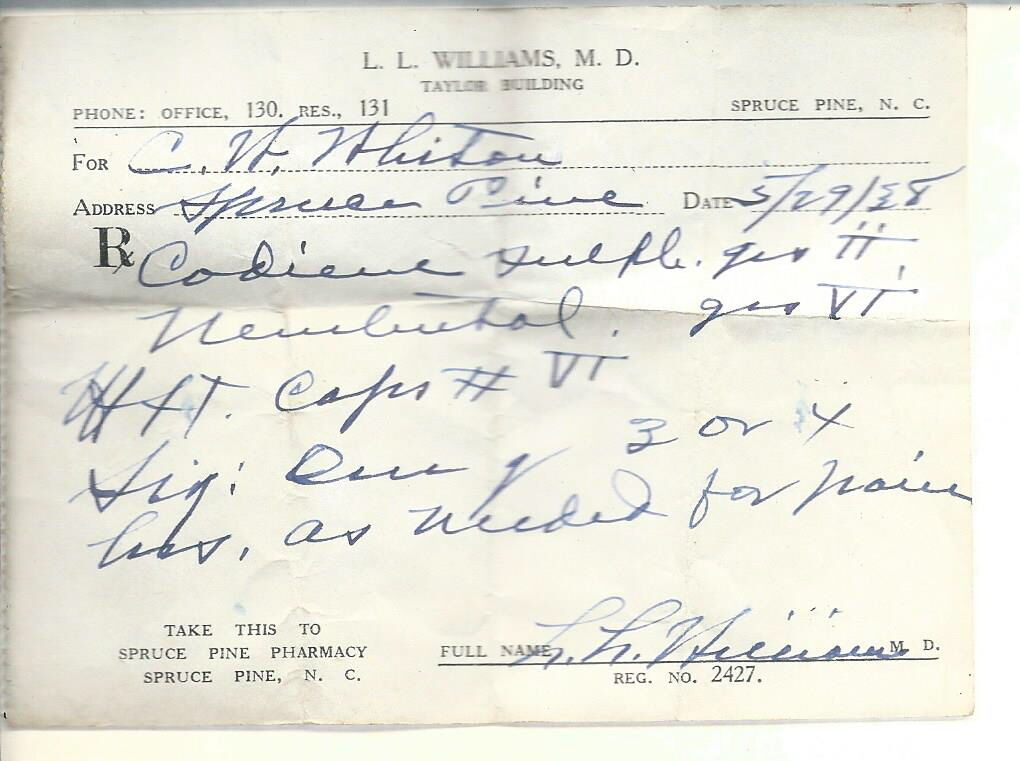 L. L. WILLIAMS, M. D.
TAYLOR BUILDING
PHONE: OFFICE, 130. RES., 131 SPRUCE PINE, N. C.
FOR C. W. Whitson
ADDRESS Spruce Pine DATE 5/29/38
Rx Codiene sulph. grs II
Nembutal. grs VI
M ft. Caps # VI
Sig: One q 3 or 4
hrs, as needed for pain
TAKE THIS TO
SPRUCE PINE PHARMACY
SPRUCE PINE, N. C.
FULL NAME L. L. Williams M. D.
REG. NO. 2427.